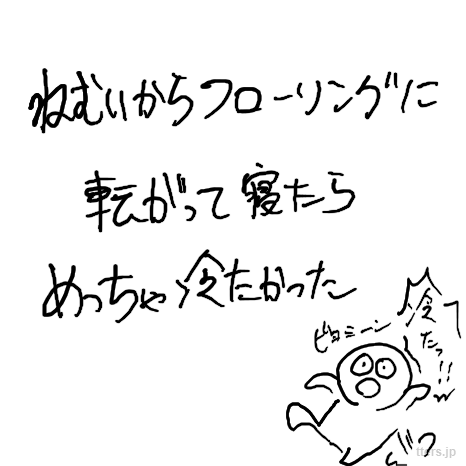 ねむいからフローリングに
転がって寝たら
めっちゃ冷たかった
冷
たっ!!
ビタミーン